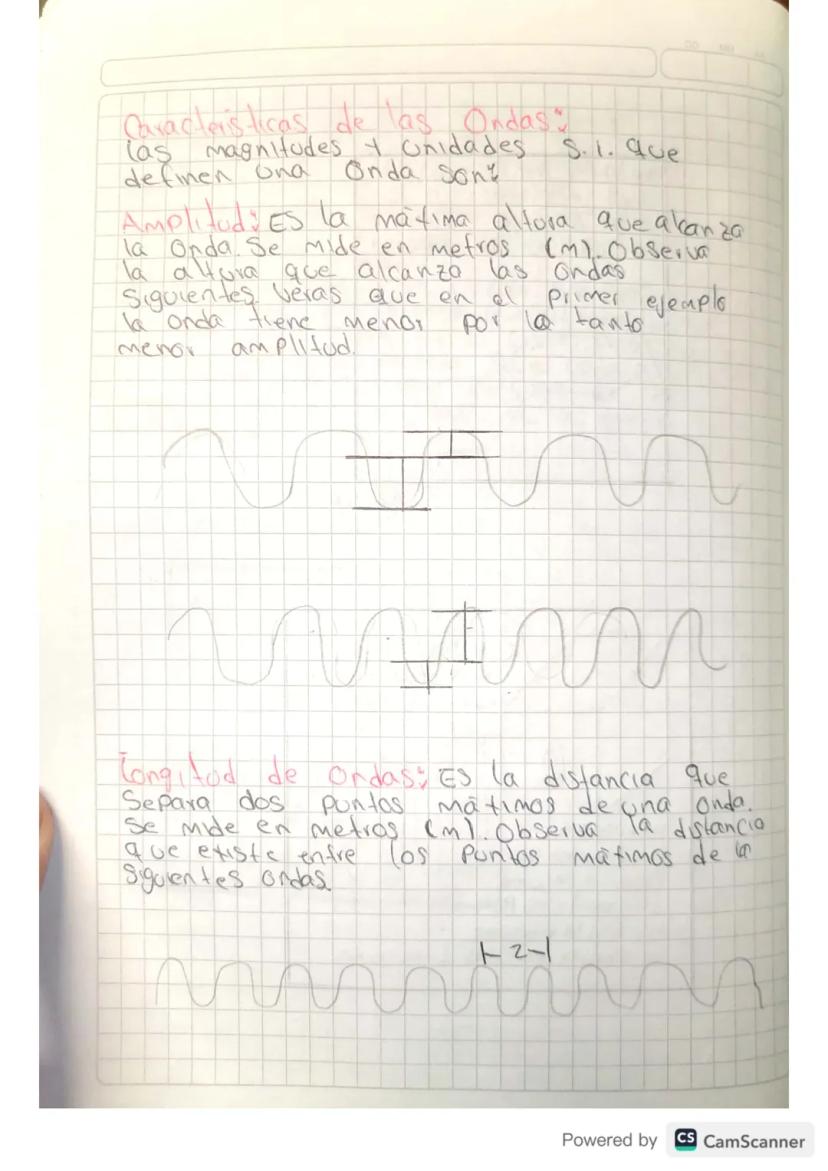 Características de las Ondas:
las magnitudes y unidades S.I. que
definen una Onda son:
Amplitud: ES la máxima altura que alcanza
la Onda. Se mide en metros (m). Observa
la altura que alcanza las ondas
Siguientes. Veras que en el primer ejemplo
la onda tiene menor por lo tanto
menor amplitud.
Longitud de ondas: ES la distancia que
Separa dos puntos máximos de una onda.
Se mide en metros (m). Observa la distancia
que existe entre los Puntos máximos de la
Siguientes ondas.
2
Powered by CS CamScanner